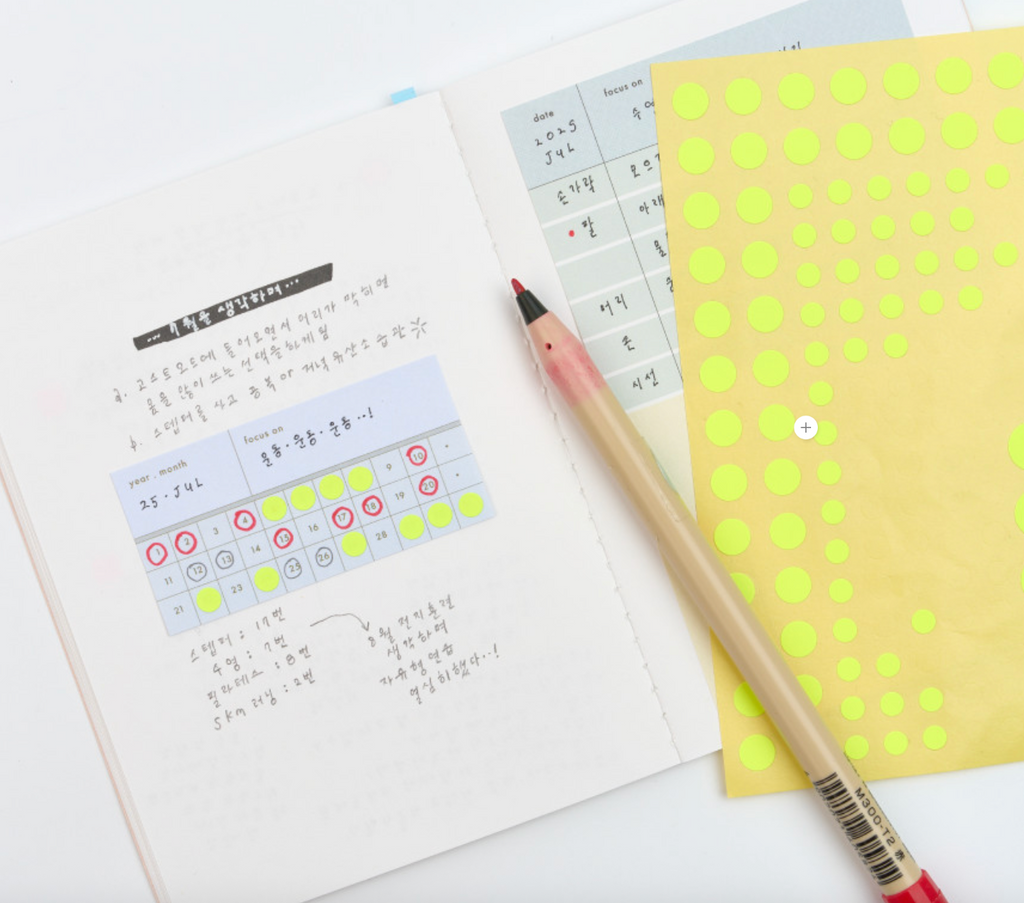 ... 7월을 생각하며...
a. 고스트모드에 들어오면서 머리가 막히면
몸을 많이 쓰는 선택을 하게 됨
b. 스텝퍼를 사고 공복 or 저녁 유산소 습관
year . month
25 . JUL
focus on
운동 · 운동 · 운동 ..!
1 2 3 4 9 10
11 12 13 14 15 16 17 18 19 20
21 23 25 26 28
스텝퍼 : 17번
수영 : 7번
필라테스 : 8번
5km 러닝 : 2번
8월 전지훈련
생각하며
자유형 연습
열심히 했다..!
date
2025
JUL
focus on
수영
손가락
팔
머리
손
시선
M300-T2